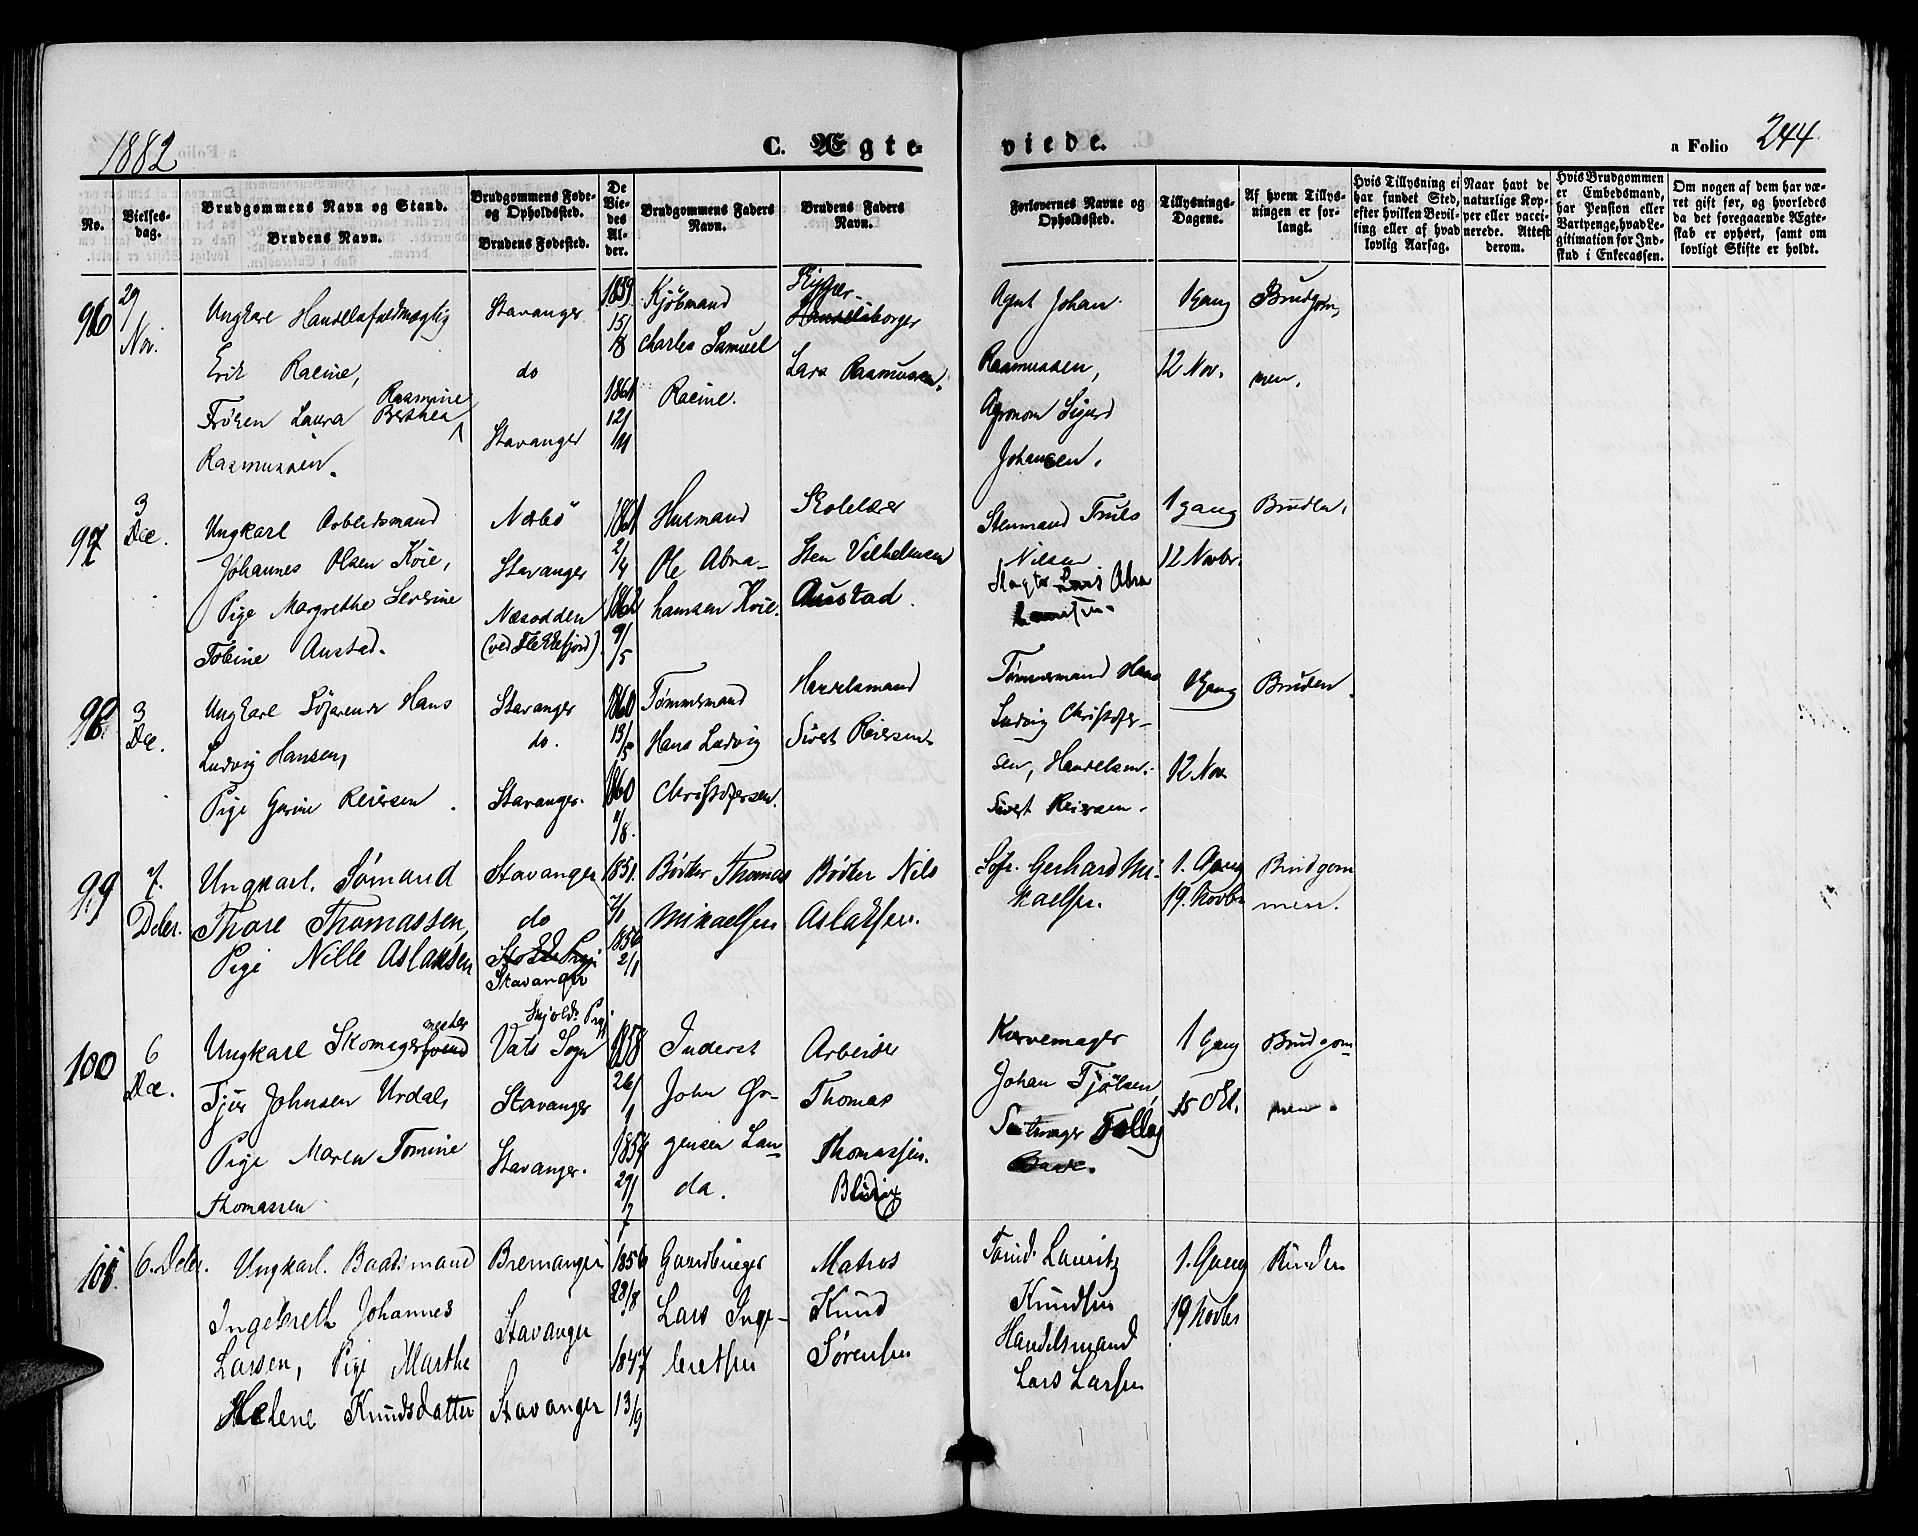 1882
C. Ægte-
viede.
a Folio 244
No.
Vielses-
dag.
Brudgommens Navn og Stand.
Brudens Navn.
Brudgommens Føde-
og Opholdssted.
Brudens Fødested.
De
Vie-
des
Al-
der.
Brudgommens Faders
Navn.
Brudens Faders
Navn.
Forlovernes Navne og
Opholdssted.
Tillysnings-
Dagene.
Af hvem Tillys-
ningen er for-
langt.
Hvis Tillysning ei
har fundet Sted,
efter hvilken Bevil-
ling eller af hvad
lovlig Aarsag.
Naar havt de
naturlige Kop-
per eller vacci-
nerede. Attest
derom.
Hvis Brudgommen
er Embedsmand,
har Pension eller
Vartpenge, hvad Le-
gitimation for Ind-
skud i Enkecassen.
Om nogen af dem har væ-
ret gift før, og hvorledes
da det foregaaende Ægte-
skab er ophørt, samt om
lovligt Skifte er holdt.
96
29/
Nov.
Ungkarl Handelsfuldmægtig
Erik Racine,
Rasmine
Frøken Laura Berthea
Rasmussen.
Stavanger
do
Stavanger
1859
15/
8
1861
12/
11
Kjøbmand
Charles Samuel
Racine.
Handelsborger
Lars Rasmussen.
Agent Johan
Rasmussen,
Agronom Sigurd
Johansen.
1 Gang
12 Nov.
Brudgom
men.
97
3
Dec.
Ungkarl Arbeidsmand
Johannes Olsen Kvie,
Pige Margrethe Severine
Tobine Austad.
Nærbö
Stavanger
Næsodden
(ved Flekkefjord)
1861
2/
4
1862
9/
5
Husmand
Ole Abra-
hamsen Kvie.
Skolelærer
Sten Vilhelmsen
Austad.
Stenmand Truls
Nilsen
Slagter Lars Abra
hamsen.
1 Gang
12 Novbr.
Bruden.
98
3
Dec.
Ungkarl Söfarende Hans
Ludvig Hansen,
Pige Gurine Reiersen.
Stavanger
do.
Stavanger.
1860
13/
5
1860
/8.
Tømmermand
Hans Ludvig
Christofersen.
Handelsmand
Sivert Reiersen.
Tømmermand Hans
Ludvig Christofer-
sen, Handelsm.
Sivert Reiersen.
1 Gang
12 Nov.
Bruden.
99
7.
Decbr.
Ungkarl. Sømand
Thore Thomassen,
Pige Nille Aslaksen
Stavanger
do
Stavanger
1851.
7/1
1856
2/1
Bødker Thomas
Mikaelsen
Bødker Nils
Aslaksen.
Söfr. Gerhard Mi-
kaelsen.
1. Gang
19. Novbr
Brudgom
men.
100
6
Dec.
mester
Ungkarl Skomagersvend
Tjer Johnsen Urdal,
Pige Maren Tomine
Thomassen
Skjolds Pgj
Vats Sogn
Stavanger
Stavanger.
1858
26/
9
1854
29/
7
Inderst
John Ør-
gensen Lan
da.
Arbeider
Thomas
Thomassen.
Kurvemager
Johan Tjølsen,
1 Gang
15 Okt.
Brudgom
men.
101.
6. Decbr.
Ungkarl. Baadsmand
Ingebreth Johannes
Larsen, Pige Marthe
Helene Knudsdatter
Bremanger
Stavanger
Stavanger
1856
28/8
1847
13/9
Gaardbruger
Lars Inge-
bretsen
Matros
Knud
Sørensen
Lauritz
Knudsen
Handelsmand
Lars Larsen
1. Gang
19 Novbr
Bruden